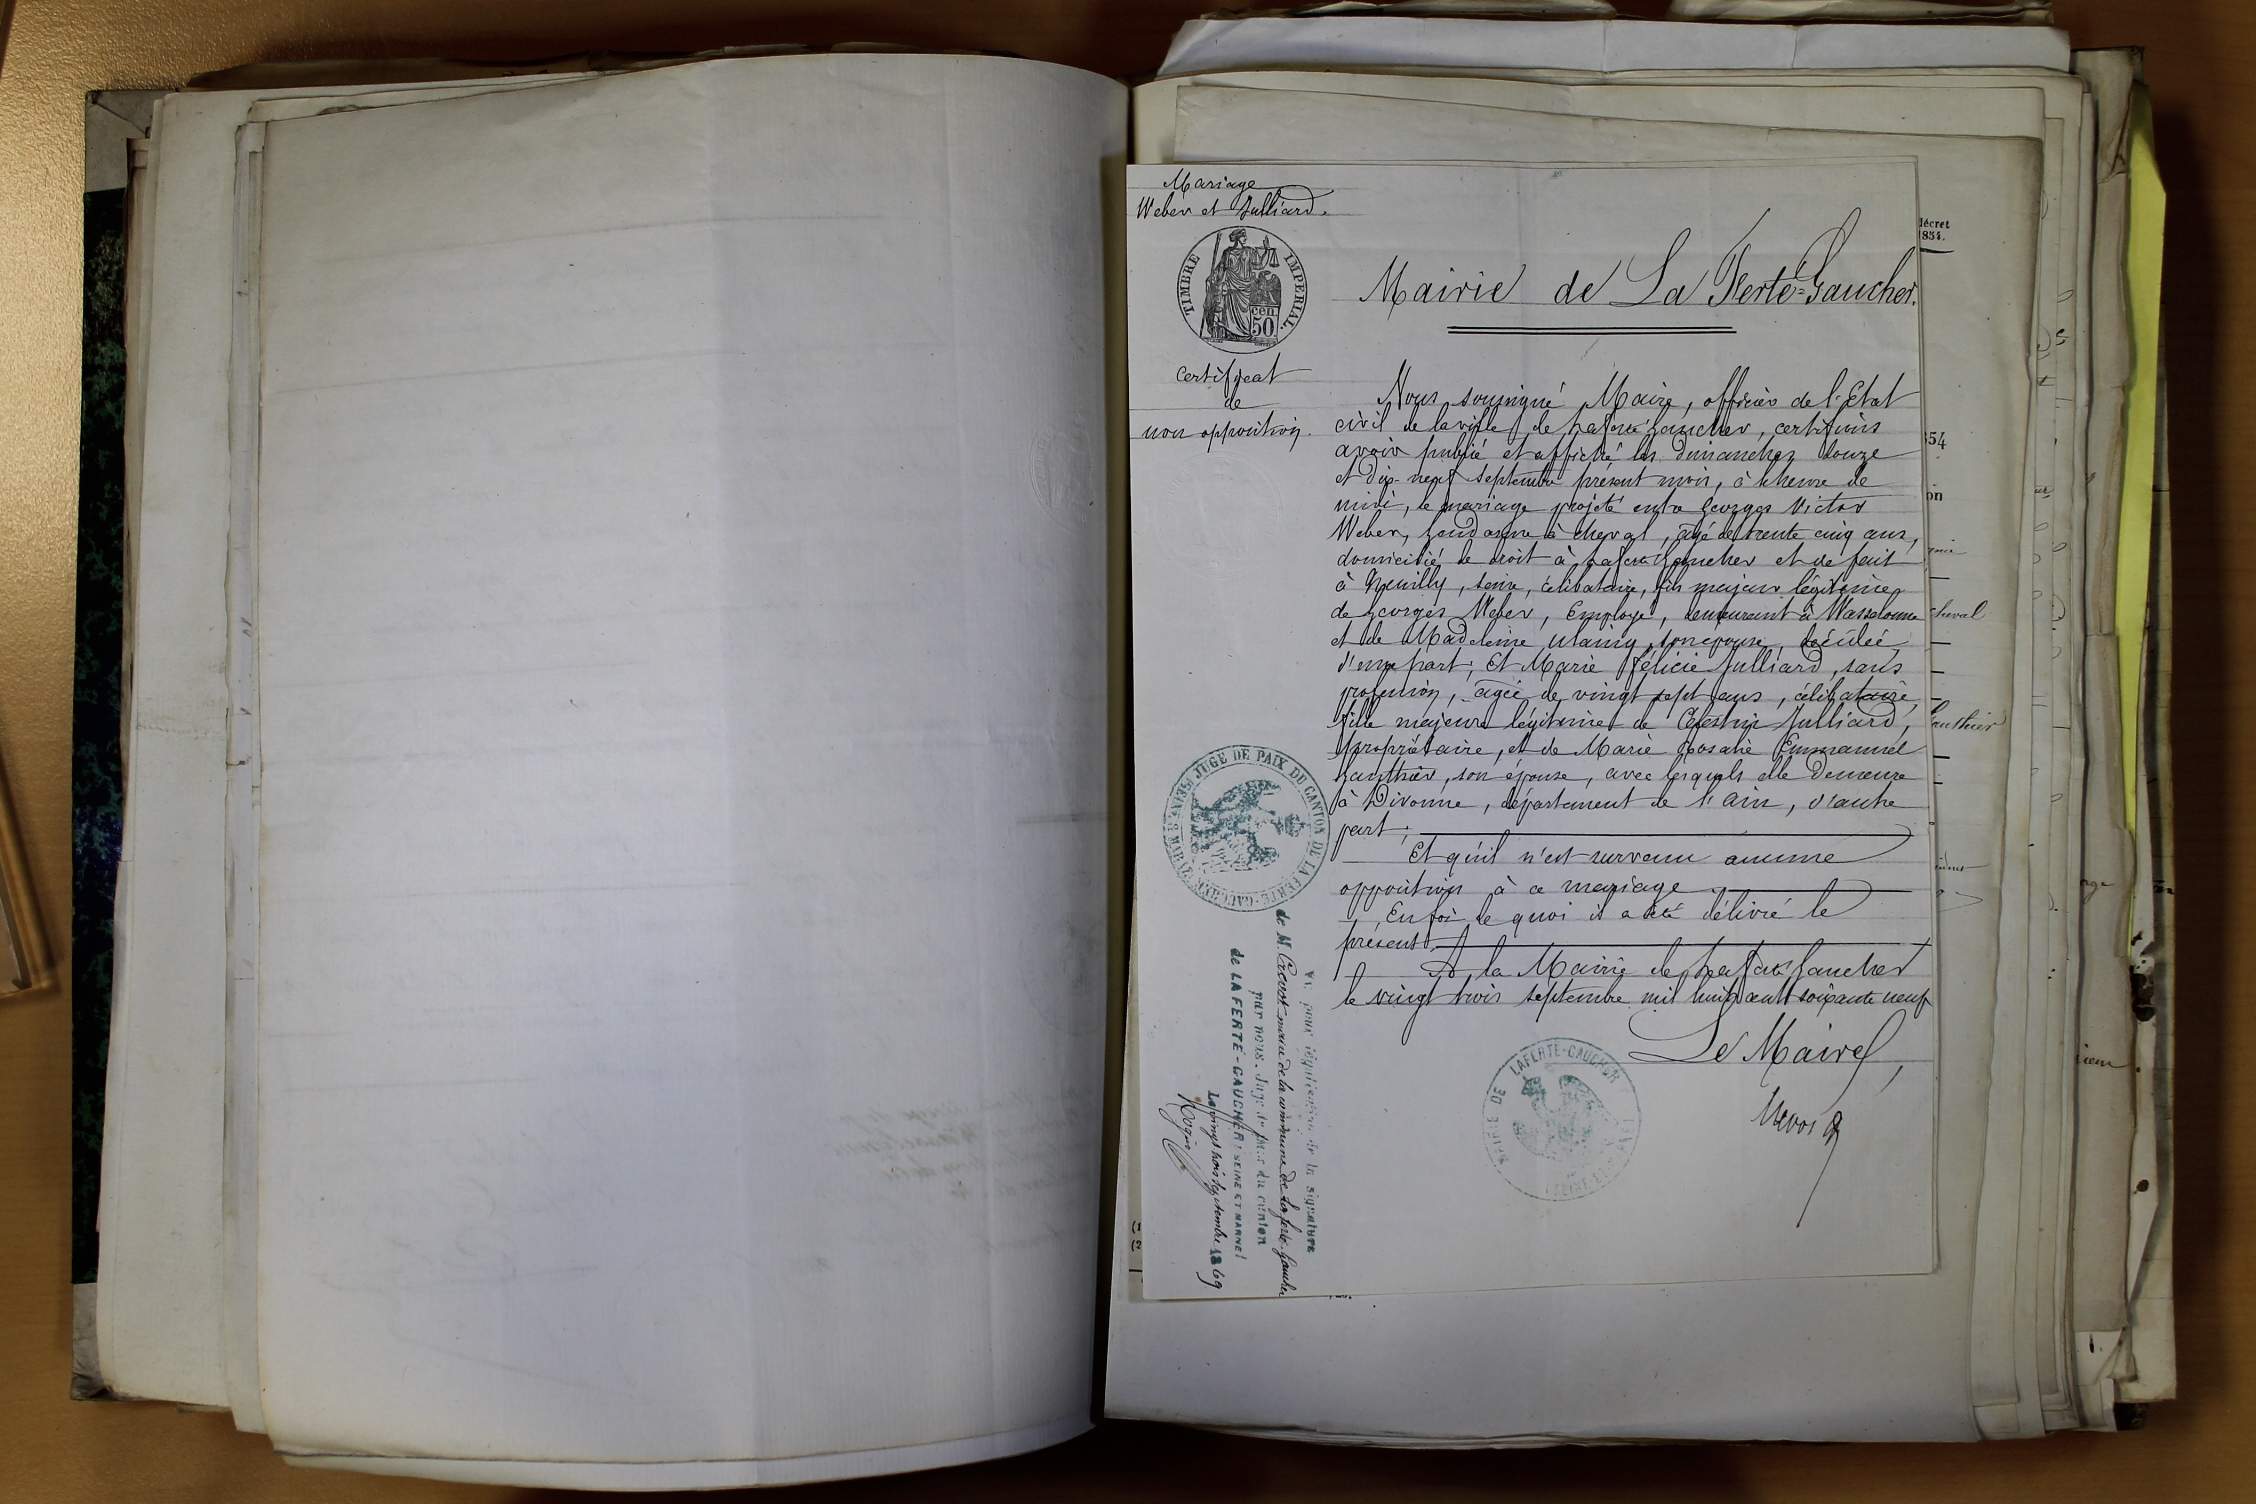 Mariage
Weber et Julliard.
TIMBRE IMPERIAL.
cen
50
Mairie de La Ferté=Gaucher.
Certificat
de
non opposition.
Nous soussigné Maire, officier de l'Etat
civil de la ville de Laferté Gaucher, certifions
avoir publié et affiché les dimanches douze
et Dix-neuf septembre présent mois, à l'heure de
midi, le mariage projeté entre Georges Victor
Weber, gendarme à cheval, âgé de trente cinq ans,
domicilié de droit à Laferté Gaucher et de fait
à Neuilly, seine, célibataire, fils majeur légitime
de Georges Weber, Employé, demeurant à Wasselonne
et de Madeleine son épouse, décédée,
d'une part; Et Marie Félicie Julliard, sans
profession, âgée de vingt sept ans, célibataire,
fille majeure légitime de Célestin Julliard,
propriétaire, et de Marie Rosalie Emmanuel
Gauthier, son épouse, avec lesquels elle demeure
à Divonne, département de l'Ain, d'autre
part;
Et qu'il n'est survenu aucune
opposition à ce mariage.
En foi de quoi il a été délivré le
présent.
A la Mairie de Laferté Gaucher
le vingt trois septembre mil huit cent soixante neuf
Le Maire,
LAFERTE-GAUCHER
MAIRIE DE
JUGE DE PAIX DU CANTON DE LA FERTE-GAUCHER
Vu pour légalisation de la signature
de M. maire de la commune de La ferté-Gaucher
par nous, Juge de paix du canton
de LA FERTE-GAUCHER (SEINE ET MARNE)
Le vingt trois septembre 1869
décret
1854.
854
on
cheval
Gauthier